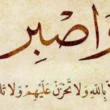 وَاصْبِرْ
بِاللَّهِ وَلَا تَحْزَنْ عَلَيْهِمْ وَلَا